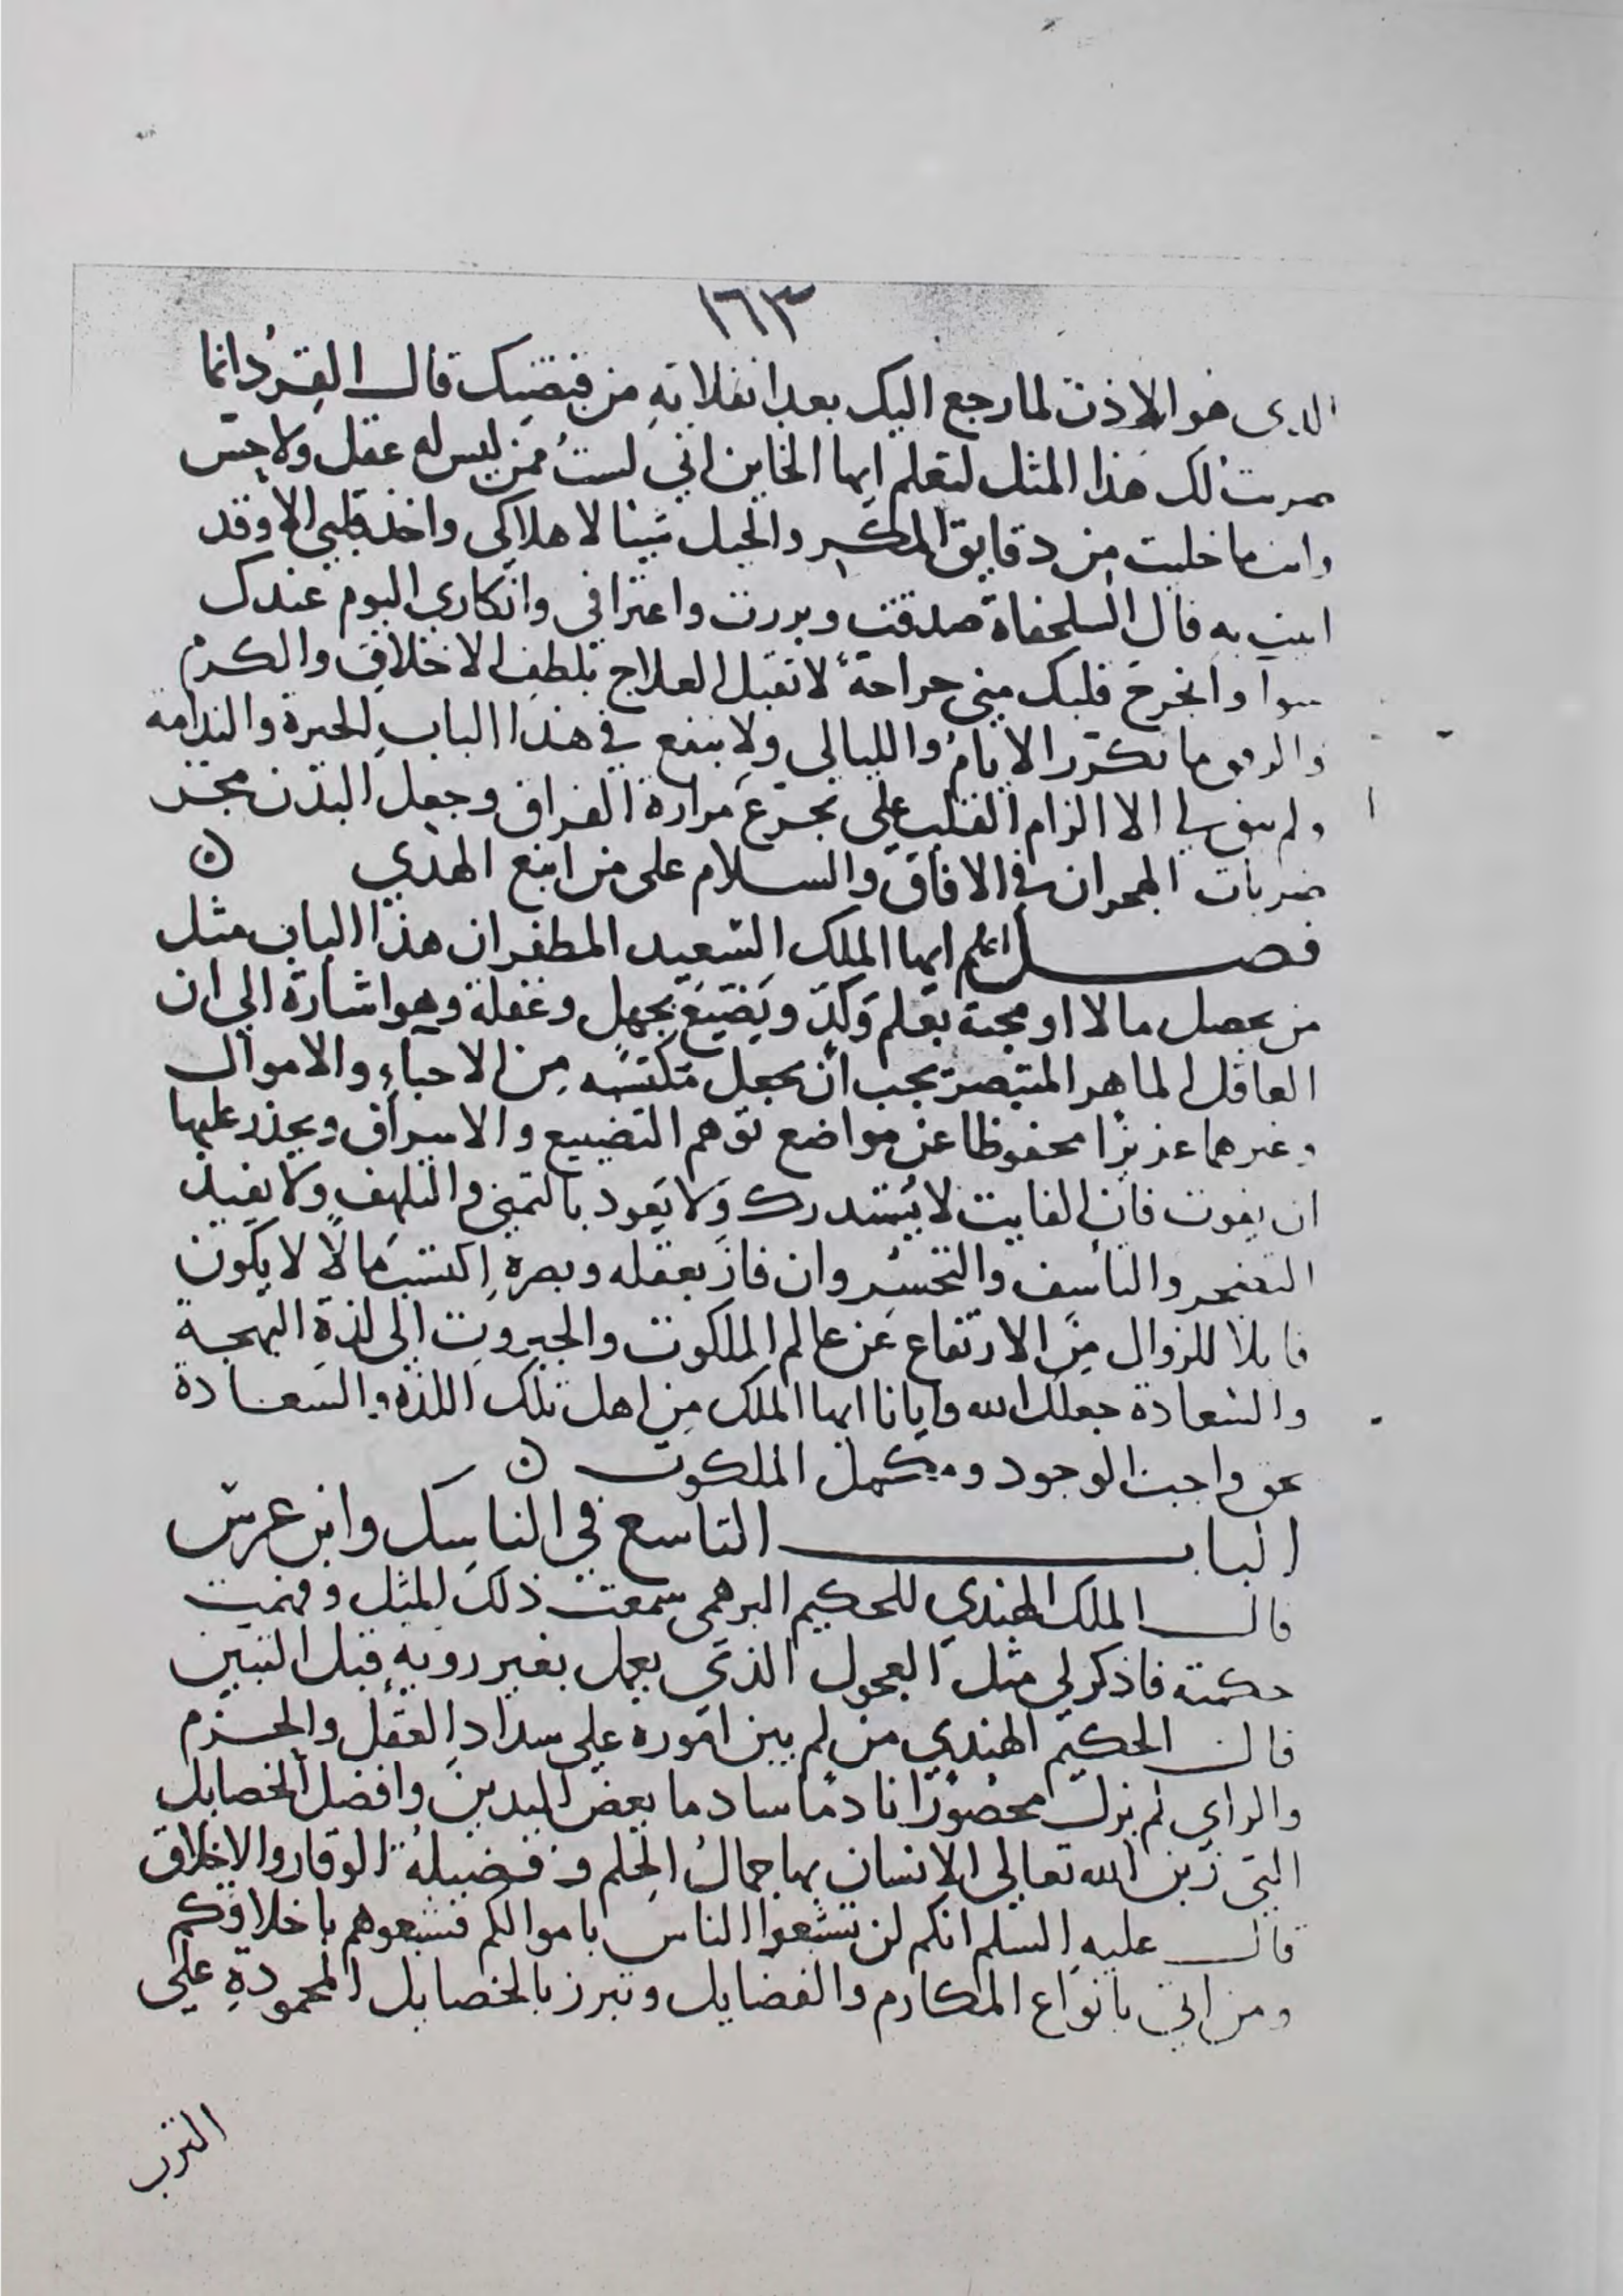 ١٦٣
الذي هو الاذن لما رجع اليك بعد انفلاته من قبضتك قال القرد انما
ضربت لك هذا المثل لتعلم ايها الخاين اني لست ممن ليس له عقل ولا حس
وانت ما خليت من دقايق المكر والحيل شيئا لاهلاكي واخذ قلبي الا وقد
اتيت به قال السلحفاة صدقت وبررت واعترافي وانكاري اليوم عندك
سوآ وانجرح قلبك مني جراحة لا تقبل العلاج بلطف الاخلاق والكرم
والرفق ما تكرر الايام والليالي ولا ينفع في هذا الباب الحيرة والندامة
ولم يبق لي الا الزام القلب على تجرع مرارة الفراق وجعل البدن مجن
ضربات الهجران في الافاق والسلام على من اتبع الهدي ن
فصل اعلم ايها الملك السعيد المظفر ان هذا الباب مثل
من يحصل مالا او محبة بعلم وكد ويضيع بجهل وغفلة وهو اشارة الي ان
العاقل الماهر المتبصر يجب ان يجعل مكتسبه من الاحباء والاموال
وغيرهما عزيزا محفوظا عن مواضع توهم التضييع والاسراف ويحذر عليها
ان يفوت فان الفايت لا يستدرك ولا يعود بالتمني والتلهف ولا يفيد
التضجر والتأسف والتحسر وان فاز بعقله وبصره اكتسب مالا لا يكون
قابلا للزوال من الارتفاع عن عالم الملكوت والجبروت الى لذة البهجة
والسعادة جعلك الله وايانا ايها الملك من اهل تلك اللذة والسعادة
بحق واجب الوجود ومكمل الملكوت ن
الباب التاسع في الناسك وابن عرس
قال الملك الهندي للحكيم البرهمى سمعت ذلك المثل وفهمت
حكمته فاذكر لي مثل العجول الذي يعمل بغير روية قبل التبين
قال الحكيم الهندي من لم يبن اموره على سداد العقل والحزم
والراي لم يزل محصورا نادما سادما بعض اليدين وافضل الخصايل
التي زين الله تعالى الانسان بها جمال الحلم وفضيلة الوقار والاخلاق
قال عليه السلم انكم لن تشبعوا الناس باموالكم فشبعوهم باخلاقكم
ومن اتى بانواع المكارم والفضايل وتبرز بالخصايل المحمودة على
الترب